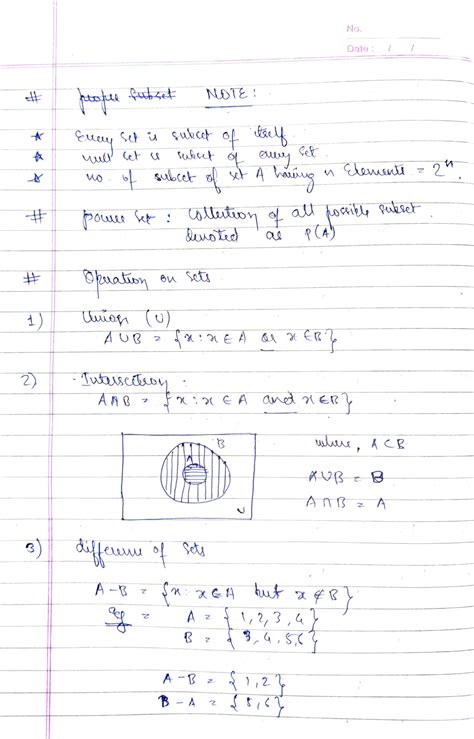 No.
Date : / /
# proper subset NOTE :
★ Every set is subset of itself
★ null set is subset of every set
★ no. of subset of set A having n Elements = 2ⁿ.
# power set : Collection of all possible subset.
denoted as P(A)
# Operation on sets
1) Union (U)
A∪B = {x : x ∈ A or x ∈ B}
2) Intersection :
A∩B = {x : x ∈ A and x ∈ B}
B
A
U
where, A⊂B
A∪B = B
A∩B = A
3) difference of sets
A-B = {x: x∈A but x∉B}
eg = A = {1,2,3,4}
B = {3,4,5,6}
A-B = {1,2}
B-A = {5,6}